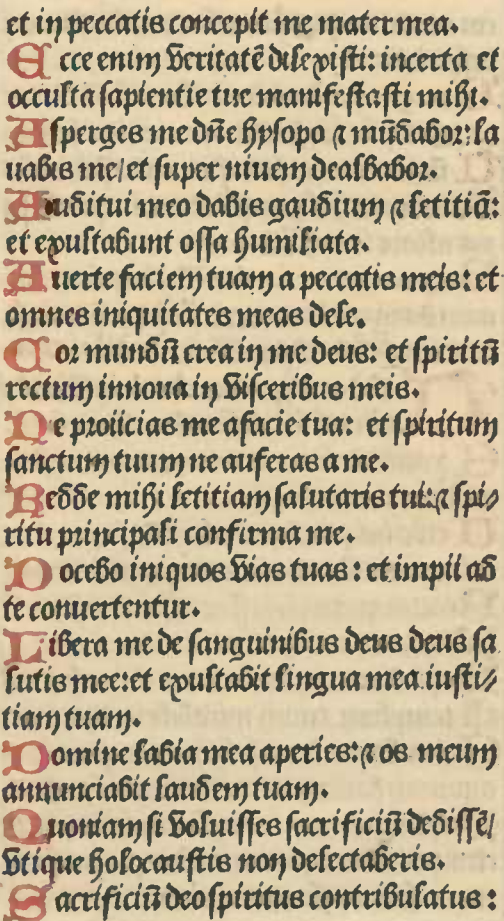 et in peccatis concepit me mater mea.
Ecce enim veritatē dilexisti: incerta et
occulta sapientie tue manifestasti mihi.
Asperges me dñe hysopo ⁊ mūdabor: la
uabis me/et super niuem dealbabor.
Auditui meo dabis gaudium ⁊ letitiā:
et exultabunt ossa humiliata.
Auerte faciem tuam a peccatis meis: et
omnes iniquitates meas dele.
Cor mundū crea in me deus: et spiritū
rectum innoua in visceribus meis.
Ne proiicias me a facie tua: et spiritum
sanctum tuum ne auferas a me.
Redde mihi letitiam salutaris tui: ⁊ spi/
ritu principali confirma me.
Docebo iniquos vias tuas: et impii ad
te conuertentur.
Libera me de sanguinibus deus deus sa
lutis mee: et exultabit lingua mea iusti/
tiam tuam.
Domine labia mea aperies: ⁊ os meum
annunciabit laudem tuam.
Quoniam si voluisses sacrificiū dedissē/
vtique holocaustis non delectaberis.
Sacrificiū deo spiritus contribulatus: